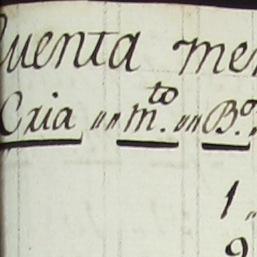 Cuenta men
Cria „ „ m.to „ „ B.o „
1 „
2